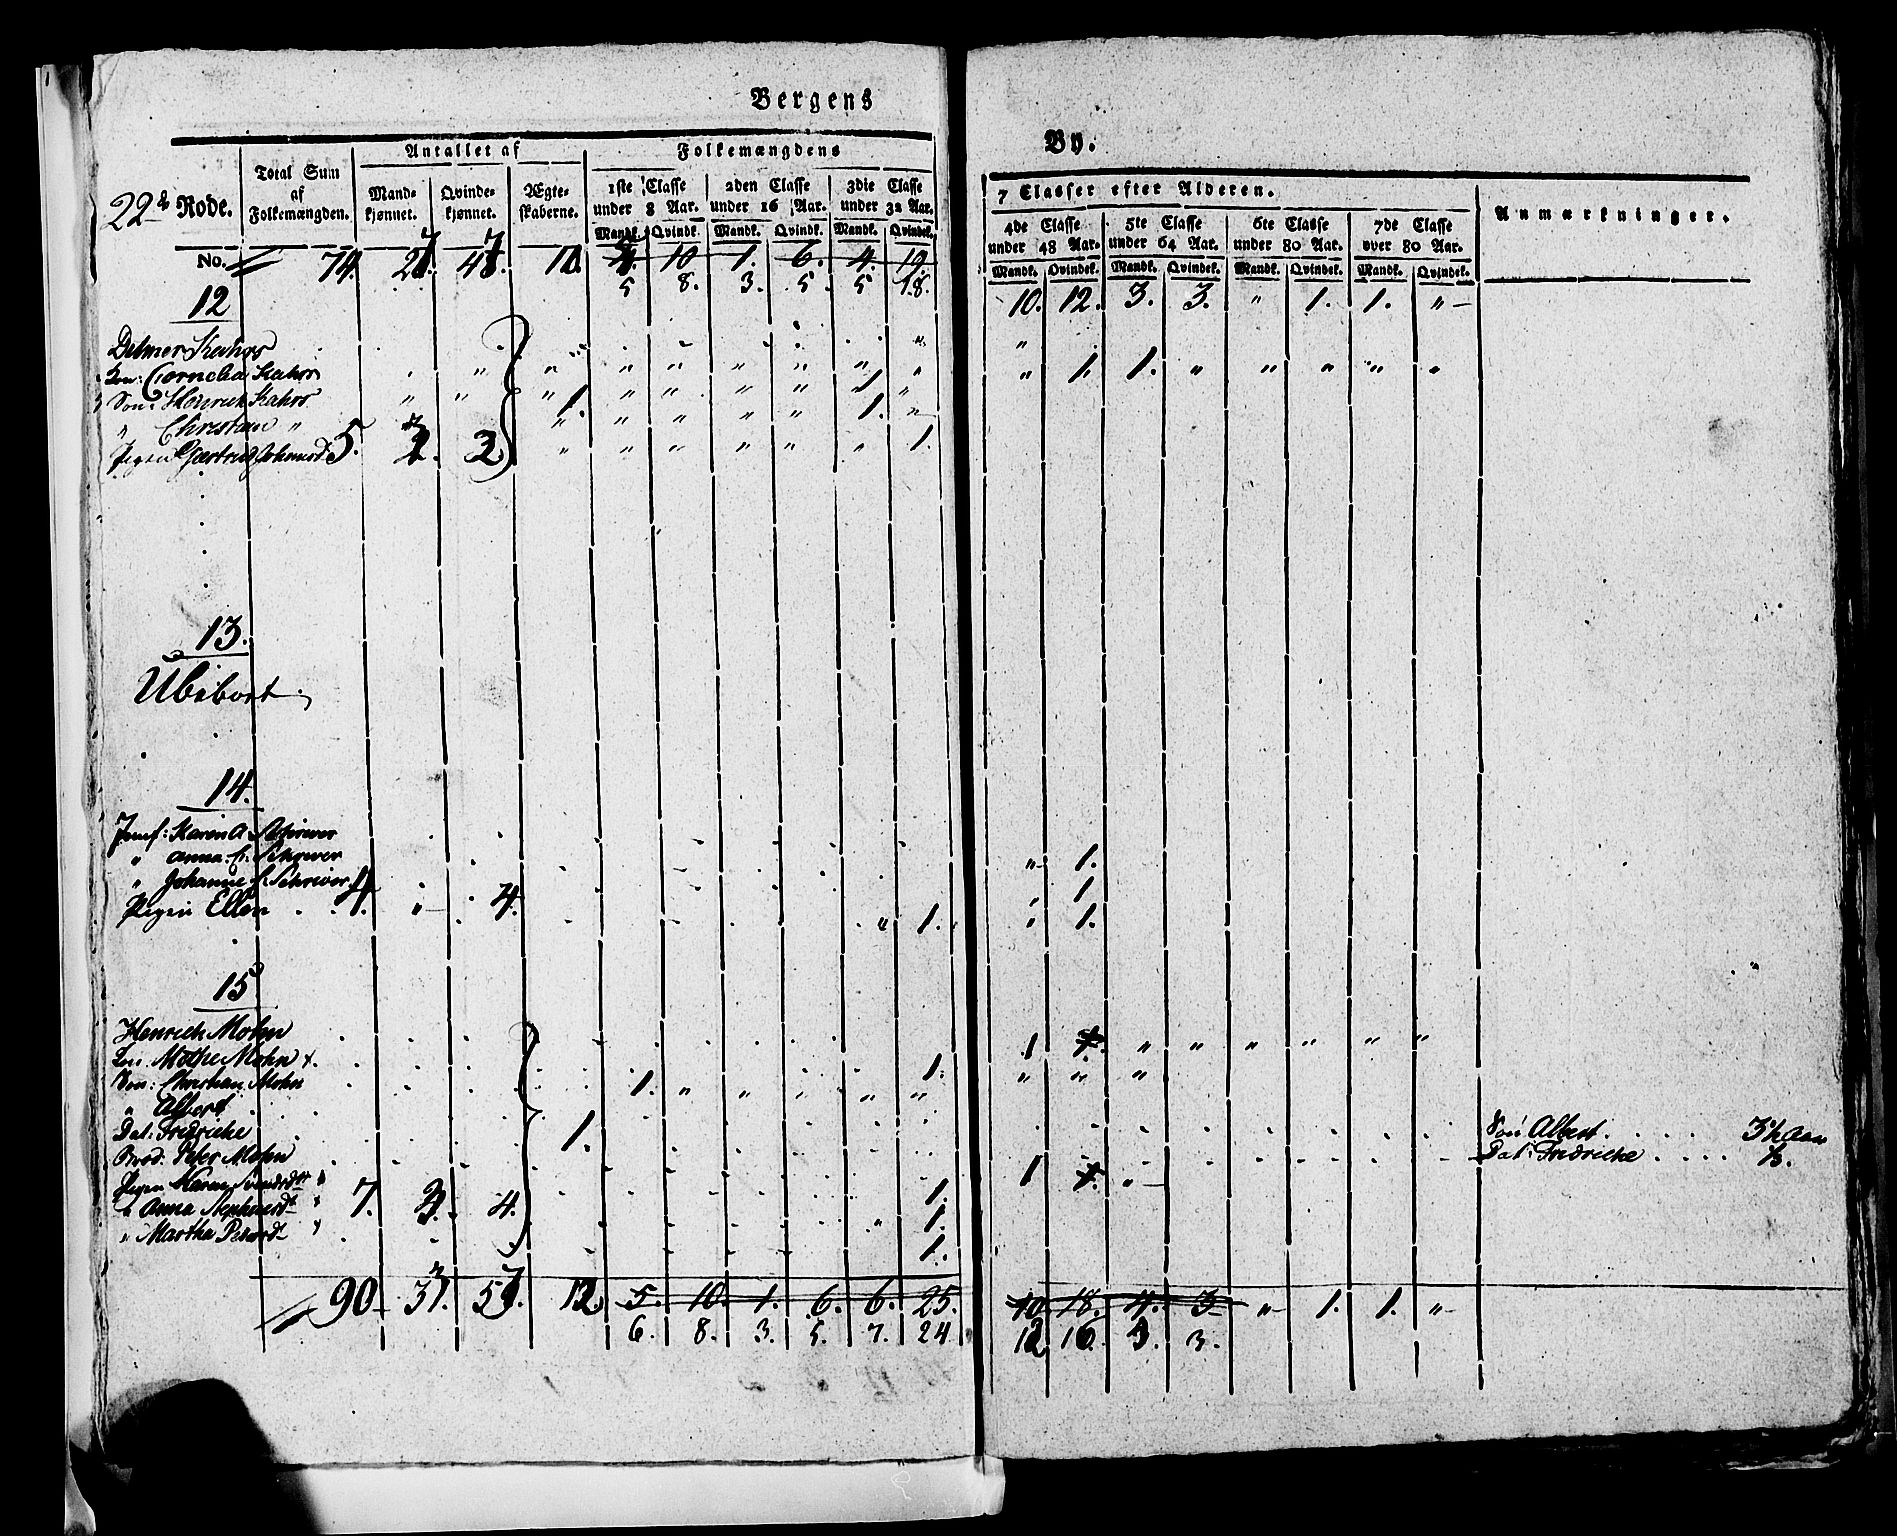 Bergens By.
22de Rode.
Total Sum af Folkemængden.
Antallet af
Mandkjønnet. Qvindekjønnet. Ægteskaberne.
Folkemængdens 7 Classer efter Alderen.
1ste Classe under 8 Aar. 2den Classe under 16 Aar. 3die Classe under 32 Aar. 4de Classe under 48 Aar. 5te Classe under 64 Aar. 6te Classe under 80 Aar. 7de Classe over 80 Aar.
Mandk. Qvindk. Mandk. Qvindk. Mandk. Qvindek. Mandk. Qvindek. Mandk. Qvindek. Mandk. Qvindek. Mandk. Qvindek.
Anmærkninger.
No. 74. 10. 10 1. 6. 4. 19.
5 8. 3. 5. 5 18. 10. 12. 3. 3. " 1. 1. "
12
Detmer Kahrs
Kon: Cornelia Kahrs " 1. 1. " " " " "
Søn: Henrich Kahrs 1. 1.
" Christian " 1.
Pigen Giertrug 5. 2 1.
13.
Ubeboet.
14.
Jomf: Karen A Schriver
" Anna C. Schriver " 1.
" Johanne Schriver 1.
Pigen Ellen 4. " 4. " 1. " 1.
15
Henrich Mohn 1 " " " " " "
Kon: Mohn 1. " " "
Søn: Christian Mohn 1. " " " " "
" Albert
Dat: Fredriche 1. Søn Albert 3½ Aar
Brod: Peter Mohn 1 " Dat: Fredriche ½.
Pigen Karen 7. 4. 1.
" Anna 1.
" Martha 1.
90 12 5. 10. 1. 6. 6. 25. 10 18. 4. 3 " 1. 1. "
6. 8. 3. 5. 7. 24 12 16. 3. 3.